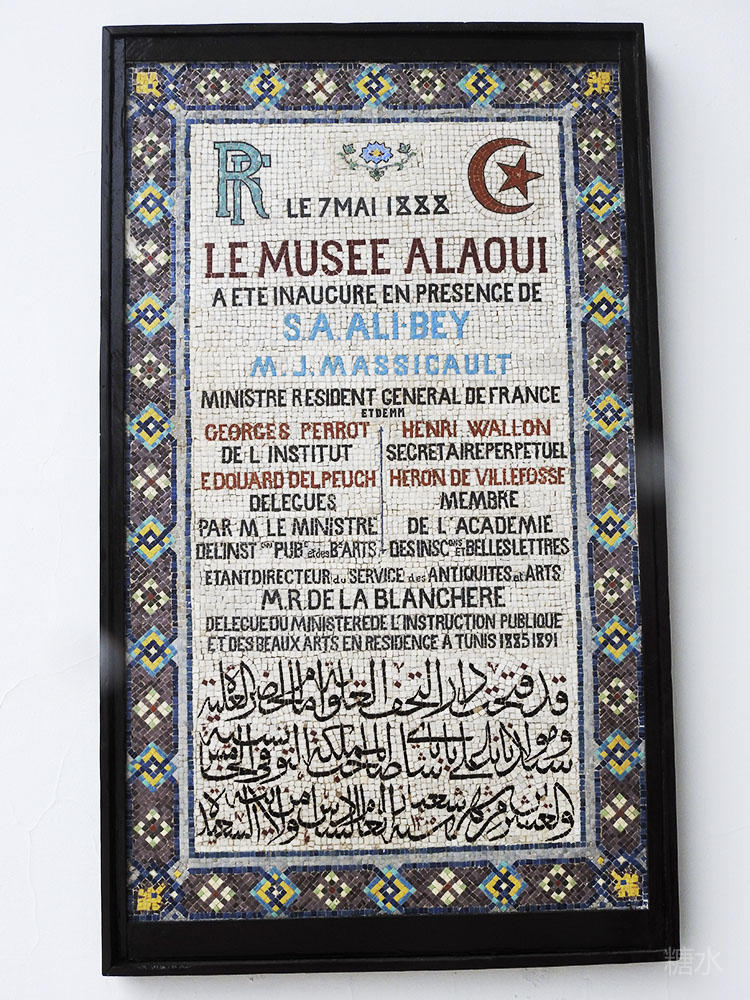 RF
LE 7 MAI 1888
LE MUSEE ALAOUI
A ETE INAUCURE EN PRESENCE DE
S.A. ALI-BEY
M. J. MASSICAULT
MINISTRE RESIDENT GENERAL DE FRANCE
ET DE MM
GEORGES PERROT
DE L INSTITUT
EDOUARD DELPEUCH
DELEGUES
PAR M LE MINISTRE
DE L'INST ᶜᵒⁿ PUBᶜ et des Bˣ ARTS
HENRI WALLON
SECRETAIRE PERPETUEL
HERON DE VILLEFOSSE
MEMBRE
DE L'ACADEMIE
DES INSCᵒⁿˢ ET BELLES LETTRES
ETANT DIRECTEUR du SERVICE des ANTIQUITES et ARTS
M. R. DE LA BLANCHERE
DELEGUE DU MINISTERE DE L'INSTRUCTION PUBLIQUE
ET DES BEAUX ARTS EN RESIDENCE A TUNIS 1885 1891
قد فتحت دار التحف العلوية امام الحضرة العلية
سيدنا ومولانا علي باي باشا صاحب المملكة التونسية في الخامس
والعشرين من شعبان
糖水